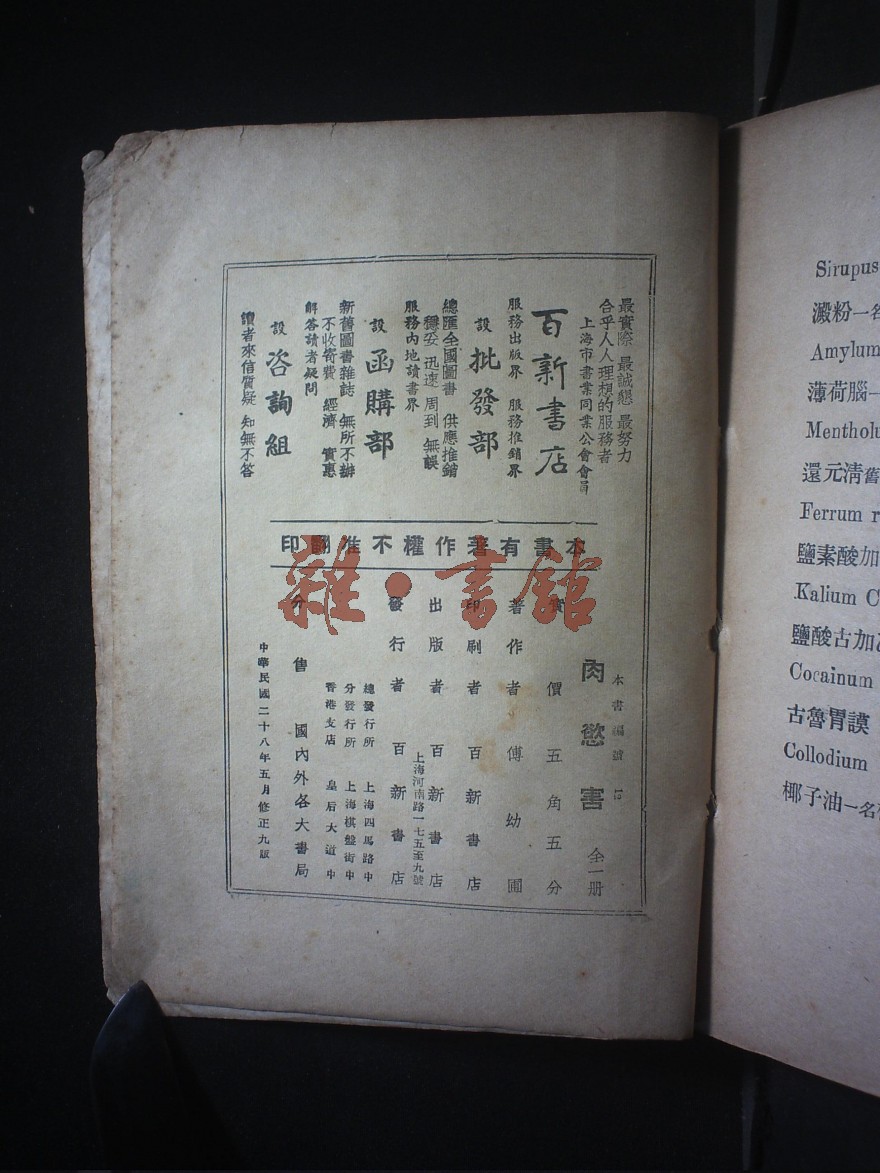 最實際 最誠懇 最努力
合乎人人理想的服務者
上海市書業同業公會會員
百新書店
服務出版界 服務推銷界
設批發部
總匯全國圖書 供應推銷
穩妥 迅速 周到 無誤
服務內地讀書界
設函購部
新舊圖書雜誌 無所不辦
不收寄費 經濟 實惠
解答讀者疑問
設咨詢組
讀者來信質疑 知無不答
本書有著作權不准翻印
本書編號 15
肉慾害 全一册
實價五角五分
著作者 傅幼圃
印刷者 百新書店
出版者 百新書店
上海河南路一七五至九號
發行者 百新書店
總發行所 上海四馬路中
分發行所 上海棋盤街中
香港支店 皇后大道中
分售 國內外各大書局
中華民國二十八年五月修正九版
雜·書館
Sirupus
澱粉一名
Amylum
薄荷腦一
Mentholu
還元清舊
Ferrum r
鹽素酸加
Kalium C
鹽酸古加
Cocainum
古魯胃謨
Collodium
椰子油一名